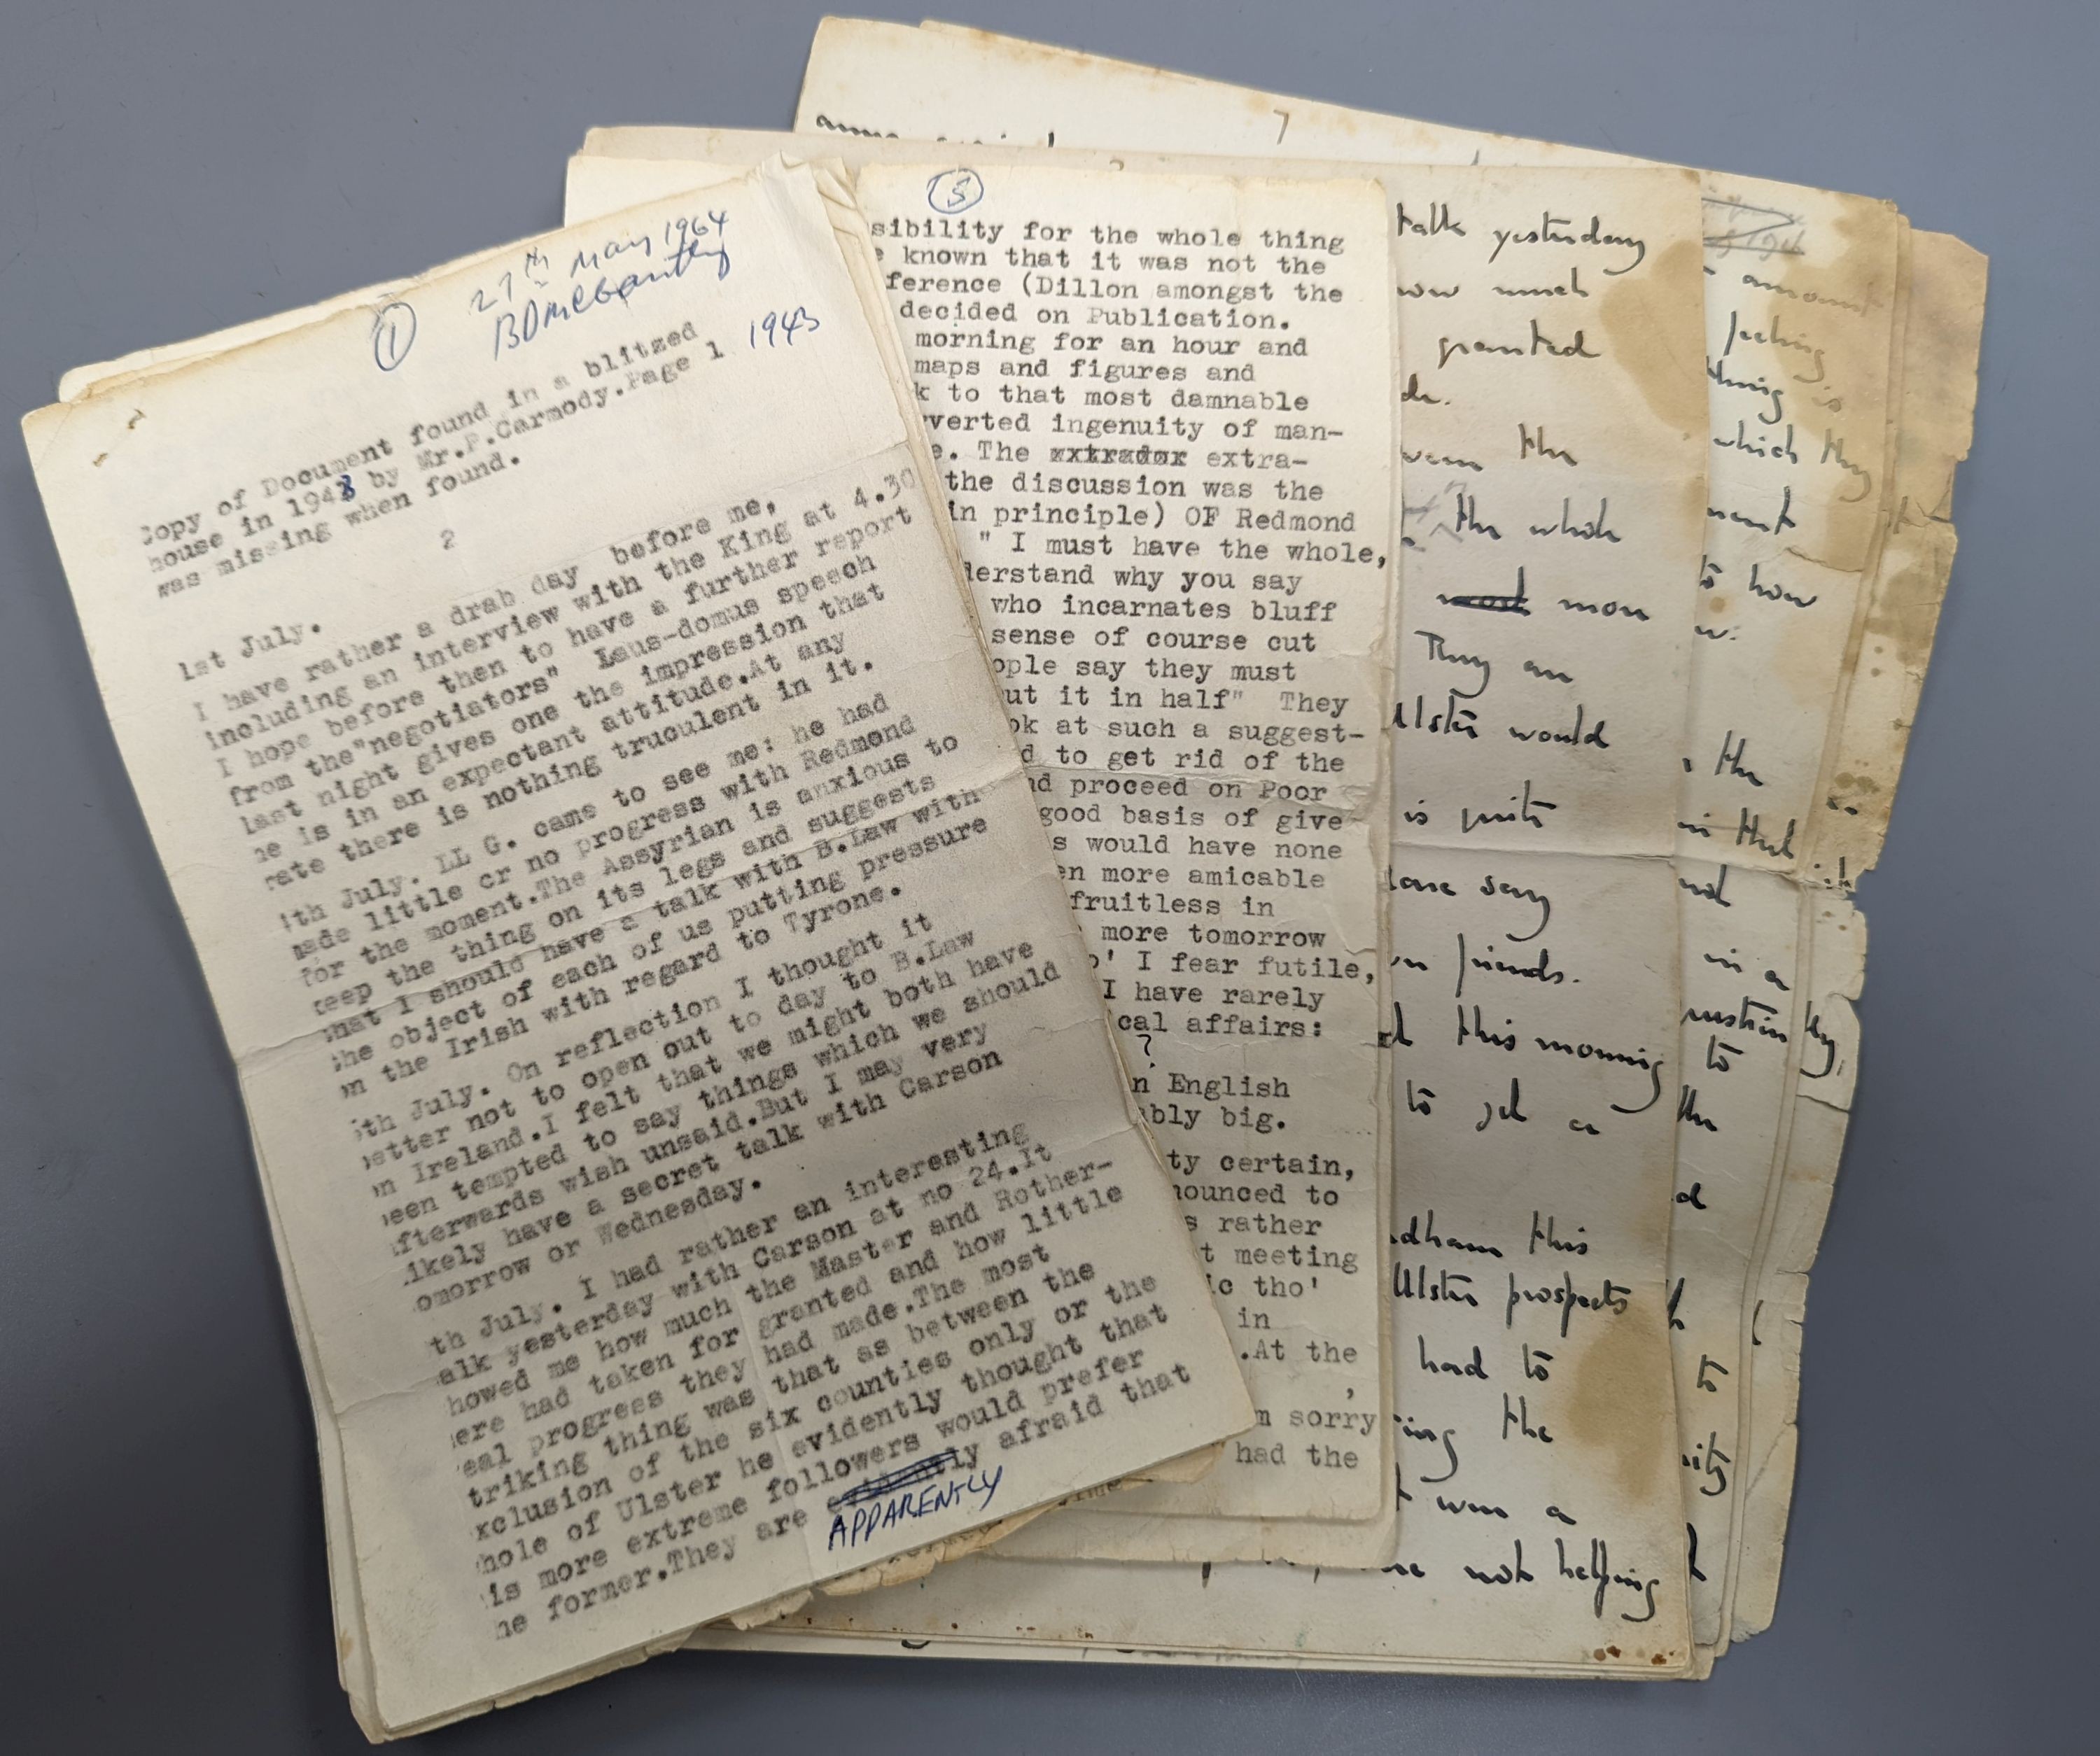 1
27th May 1964
BOMcGanthy
Copy of Document found in a blitzed
house in 1943 by Mr.P.Carmody.Page 1
1943
was missing when found.
2
1st July.
I have rather a drab day before me,
including an interview with the King at 4.30
I hope before then to have a further report
from the"negotiators" Laus-domus speech
last night gives one the impression that
he is in an expectant attitude.At any
rate there is nothing truculent in it.
th July. LL G. came to see me: he had
made little or no progress with Redmond
for the moment.The Assyrian is anxious to
keep the thing on its legs and suggests
that I should have a talk with B.Law with
the object of each of us putting pressure
on the Irish with regard to Tyrone.
th July. On reflection I thought it
better not to open out to day to B.Law
on Ireland.I felt that we might both have
been tempted to say things which we should
afterwards wish unsaid.But I may very
likely have a secret talk with Carson
tomorrow or Wednesday.
th July. I had rather an interesting
alk yesterday with Carson at no 24.It
howed me how much the Master and Rother-
ere had taken for granted and how little
eal progress they had made.The most
triking thing was that as between the
xclusion of the six counties only or the
hole of Ulster he evidently thought that
is more extreme followers would prefer
he former.They are evidently afraid that
APPARENTLY
5
sibility for the whole thing
e known that it was not the
ference (Dillon amongst the
decided on Publication.
morning for an hour and
maps and figures and
k to that most damnable
rverted ingenuity of man-
e. The xxtradox extra-
the discussion was the
in principle) OF Redmond
" I must have the whole,
derstand why you say
who incarnates bluff
sense of course cut
ople say they must
ut it in half" They
ok at such a suggest-
d to get rid of the
nd proceed on Poor
good basis of give
s would have none
en more amicable
fruitless in
more tomorrow
o' I fear futile,
I have rarely
cal affairs:
?
n English
ably big.
ty certain,
nounced to
s rather
t meeting
ic tho'
in
.At the
,
m sorry
had the
7
talk yesterday
how much
granted
de.
ween the
the whole
most more
They are
Ulster would
is quite
dare say
own friends.
d this morning
to get a
dham this
Ulster prospects
had to
ing the
t was a
are not helping
amount
feeling
thing is
which they
ment
to how
the
in that
not
in a
to
the
d
to